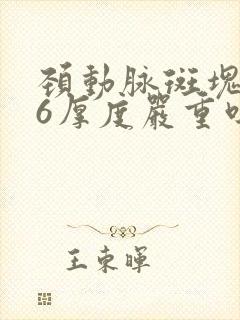 頚動脉斑塊
6厚度嚴重
王東暉